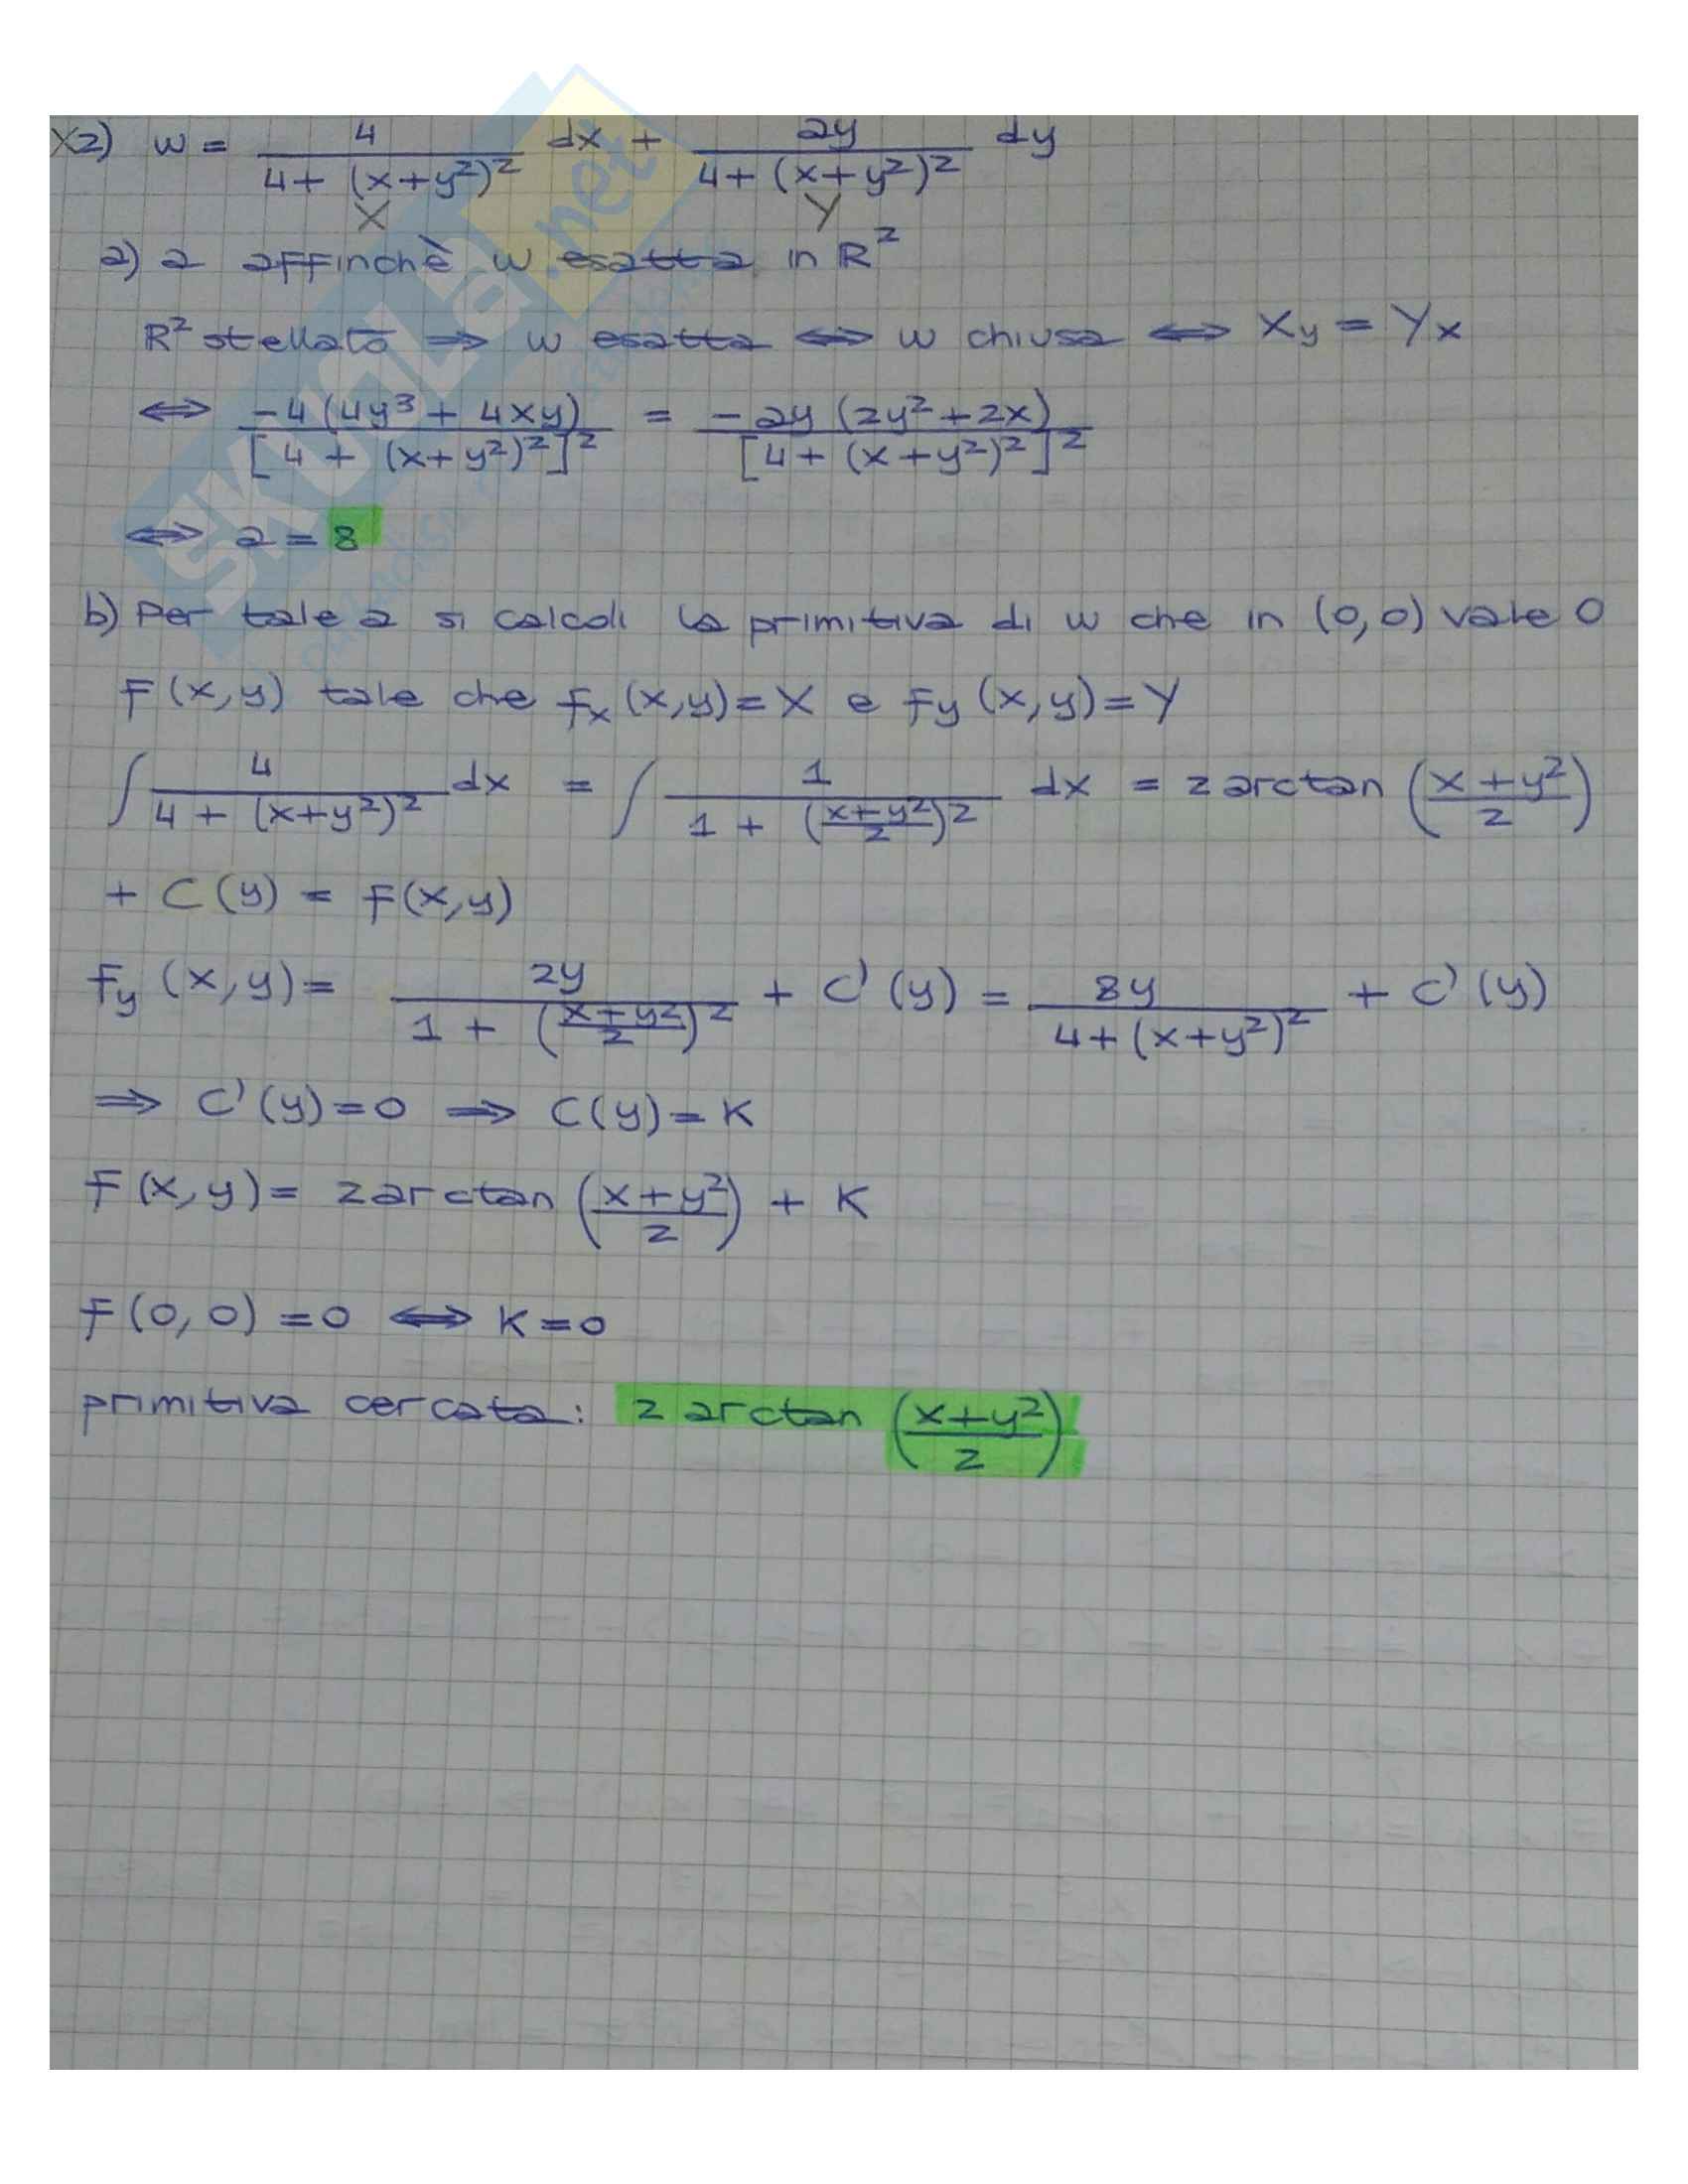 X2) w = 4 / 4+ (x+y²)² dx + ay / 4+ (x+y²)² dy
X Y
a) a affinchè w esatta in R²
R² stellato ⇒ w esatta ⇔ w chiusa ⇔ Xy = Yx
⇔ -4(4y³ + 4xy) / [4 + (x+y²)²]² = -ay (2y²+2x) / [4+ (x+y²)²]²
⇔ a = 8
b) Per tale a si calcoli la primitiva di w che in (0,0) vale 0
F(x,y) tale che fx(x,y)=X e Fy(x,y)=Y
∫ 4 / 4 + (x+y²)² dx = ∫ 1 / 1 + (x+y²/2)² dx = 2 arctan (x+y²/2)
+ C(y) = F(x,y)
Fy(x,y)= 2y / 1 + (x+y²/2)² + C'(y) = 8y / 4+(x+y²)² + C'(y)
⇒ C'(y)=0 ⇒ C(y)=K
F(x,y)= 2 arctan (x+y²/2) + K
F(0,0)=0 ⇔ K=0
primitiva cercata: 2 arctan (x+y²/2)
SKUOLa.net